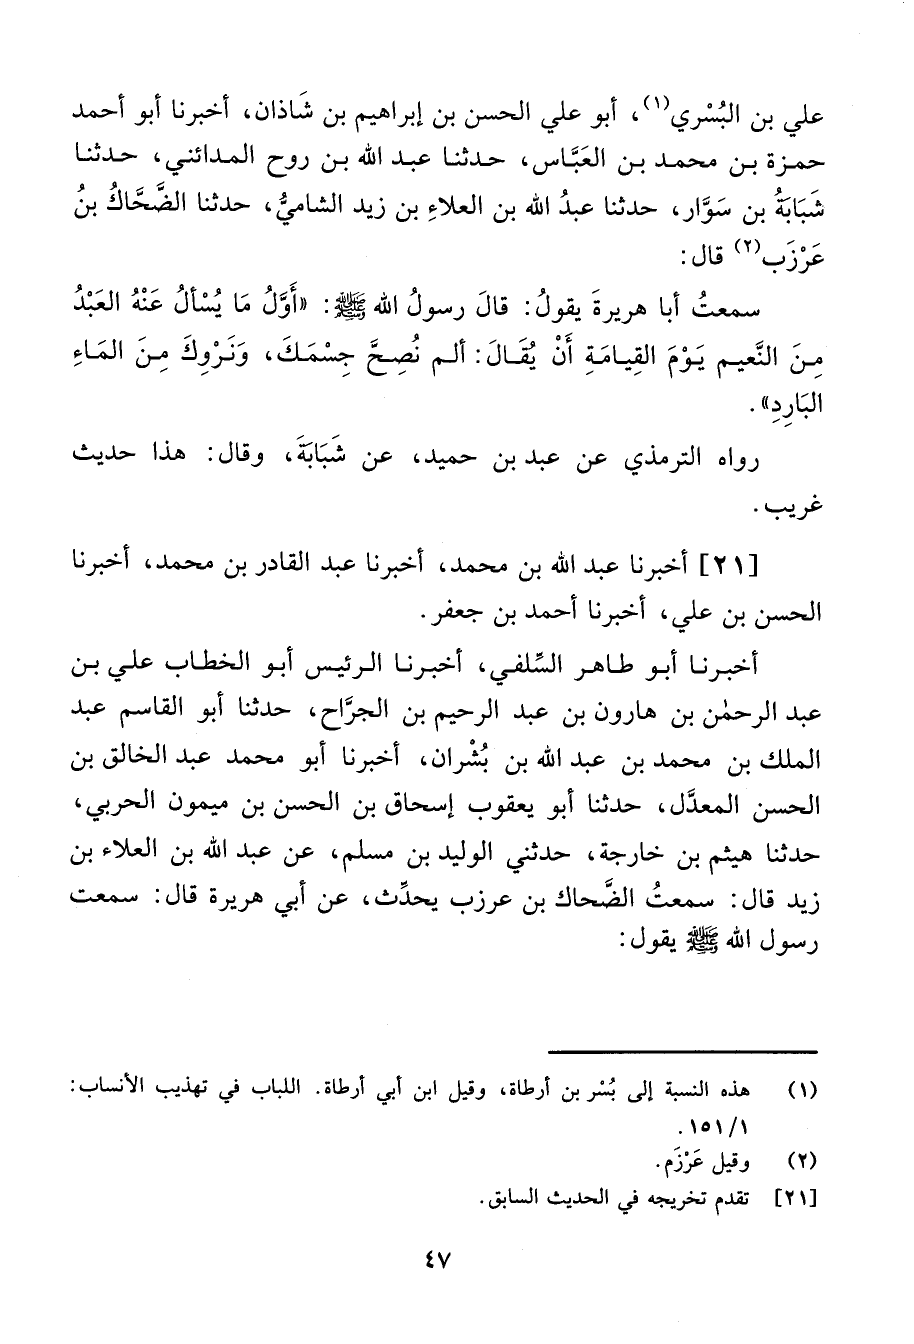 علي بن البُسْري(١)، أبو علي الحسن بن إبراهيم بن شَاذان، أخبرنا أبو أحمد
حمزة بن محمد بن العَبَّاس، حدثنا عبد الله بن روح المدائني، حدثنا
شَبَابَةُ بن سَوَّار، حدثنا عبدُ الله بن العلاءِ بن زيد الشاميُّ، حدثنا الضَّحَّاكُ بنُ
عَرْزَب(٢) قال:
سمعتُ أبا هريرةَ يقولُ: قالَ رسولُ الله ﷺ: «أَوَّلُ مَا يُسْألُ عَنْهُ العَبْدُ
مِنَ النَّعيم يَوْمَ القِيامَةِ أَنْ يُقَالَ: ألم نُصِحَّ جِسْمَكَ، وَنَرْوِكَ مِنَ المَاءِ
البَارِدِ».
رواه الترمذي عن عبد بن حميد، عن شَبَابَةَ، وقال: هذا حديث
غريب.
[٢١] أخبرنا عبد الله بن محمد، أخبرنا عبد القادر بن محمد، أخبرنا
الحسن بن علي، أخبرنا أحمد بن جعفر.
أخبرنا أبو طاهر السِّلفي، أخبرنا الرئيس أبو الخطاب علي بن
عبد الرحمٰن بن هارون بن عبد الرحيم بن الجرَّاح، حدثنا أبو القاسم عبد
الملك بن محمد بن عبد الله بن بُشْران، أخبرنا أبو محمد عبد الخالق بن
الحسن المعدَّل، حدثنا أبو يعقوب إسحاق بن الحسن بن ميمون الحربي،
حدثنا هيثم بن خارجة، حدثني الوليد بن مسلم، عن عبد الله بن العلاء بن
زيد قال: سمعتُ الضَّحاك بن عرزب يحدِّث، عن أبي هريرة قال: سمعت
رسول الله ﷺ يقول:
(١) هذه النسبة إلى بُسْر بن أرطاة، وقيل ابن أبي أرطاة. اللباب في تهذيب الأنساب:
١/١٥١.
(٢) وقيل عَرْزَم.
[٢١] تقدم تخريجه في الحديث السابق.
٤٧